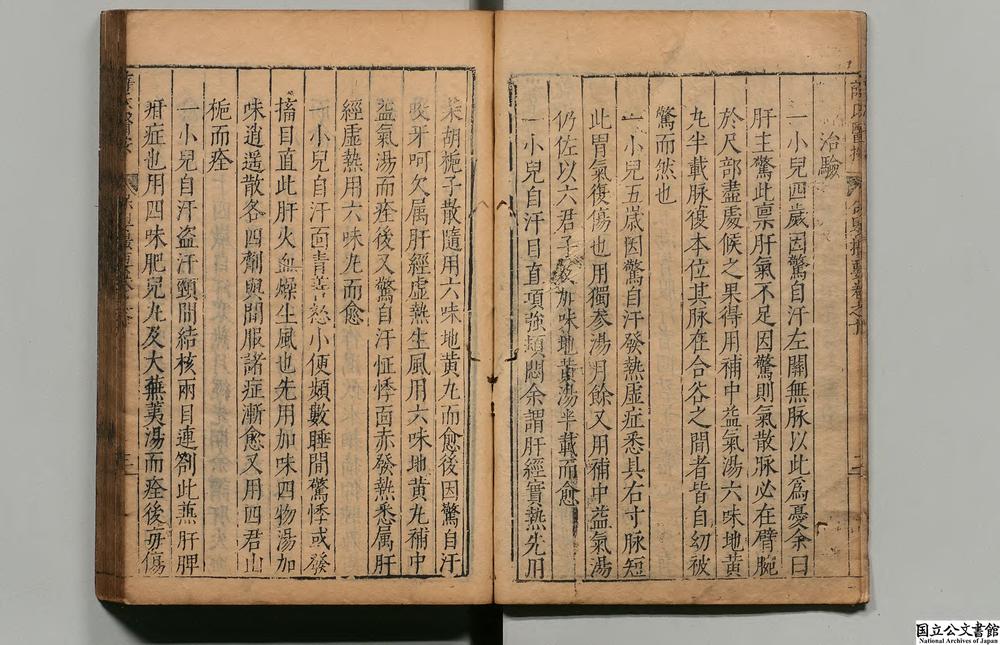 治驗
一小兒四歲因驚自汗左關無脉以此爲憂余曰
肝主驚此禀肝氣不足因驚則氣散脉必在臂腕
於尺部盡處候之果得用補中益氣湯六味地黃
丸半載脉復本位其脉在合谷之間者皆自幼被
驚而然也
一小兒五歲因驚自汗發熱虛症悉具右寸脉短
此胃氣復傷也用獨參湯月餘又用補中益氣湯
仍佐以六君子及加味地黃湯半載而愈
一小兒自汗目直項強頰悶余謂肝經實熱先用
柴胡梔子散隨用六味地黃丸而愈後因驚自汗
咬牙呵欠属肝經虛熱生風用六味地黃丸補中
益氣湯而痊後又驚自汗怔悸面赤發熱悉属肝
經虛熱用六味丸而愈
一小兒自汗面青善怒小便頻數睡間驚悸或發
搐目直此肝火血燥生風也先用加味四物湯加
味逍遥散各四劑與間服諸症漸愈又用四君山
梔而痊
一小兒自汗盜汗頸間結核兩目連劄此蕉肝脾
疳症也用四味肥兒丸及大蕪荑湯而痊後毋傷
国立公文書館
National Archives of Japan